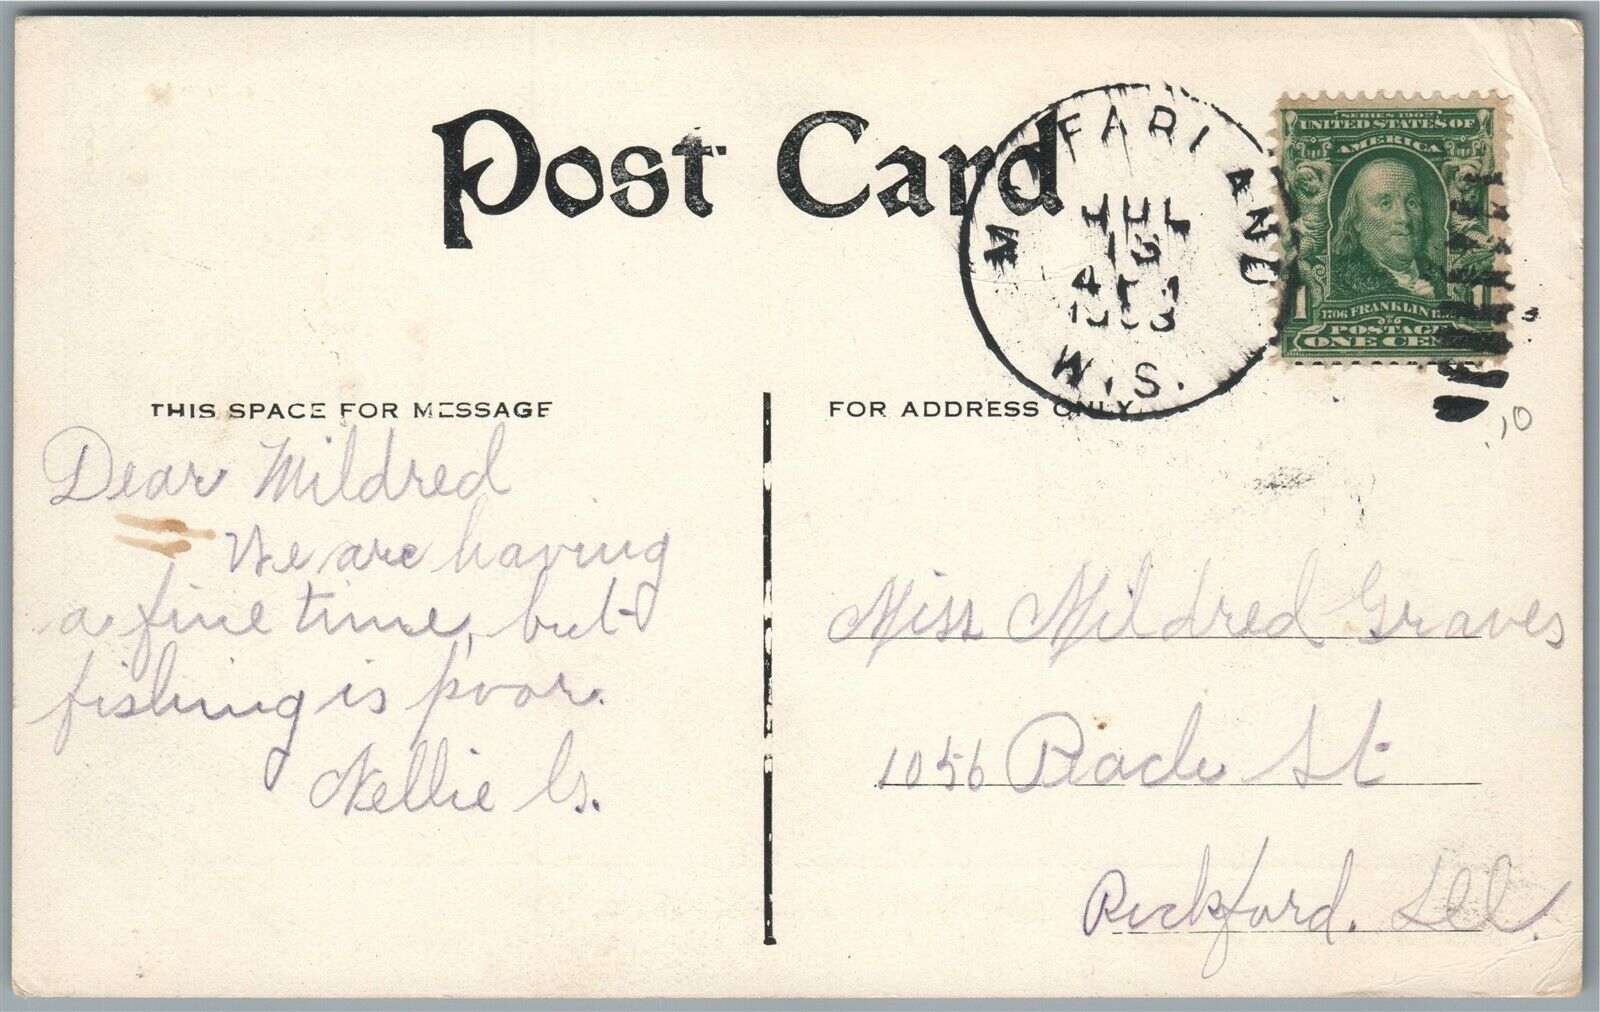 Post Card
McFARLAND
JUL
13
4 PM
1908
WIS.
SERIES 1902
UNITED STATES OF
AMERICA
1706 FRANKLIN
POSTAGE
1 ONE CENT 1
THIS SPACE FOR MESSAGE
FOR ADDRESS ONLY.
.10
Dear Mildred
We are having
a fine time, but
fishing is poor.
Nellie G.
Miss Mildred Graves
1056 St
Rockford. Ill.